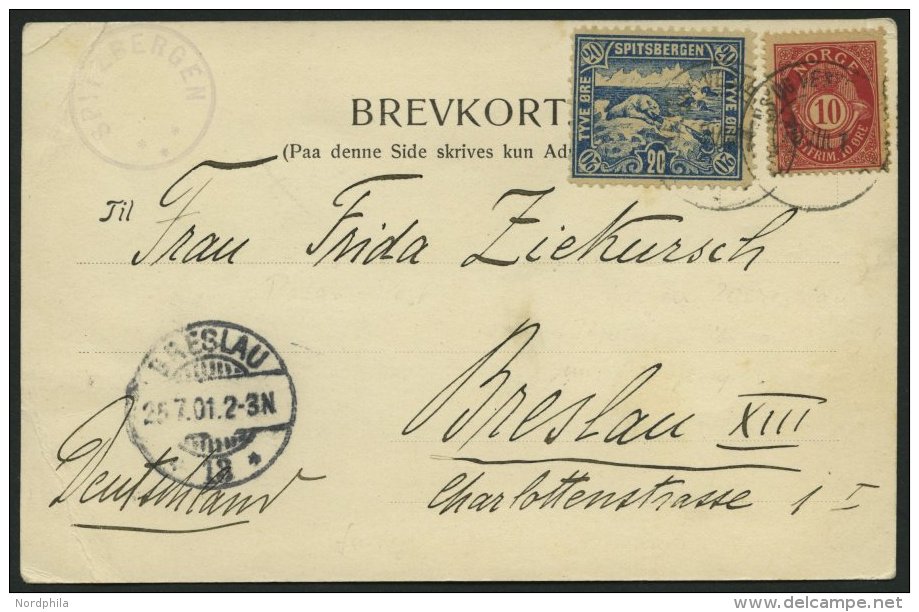 SPITZBERGEN
20 SPITSBERGEN 20
TYVE ØRE
TYVE ØRE
20 20 20
NORGE
10
POSTFRIM. 10 ØRE
BREVKORT
(Paa denne Side skrives kun
Til
Frau Frida Ziekursch
BRESLAU
25.7.01.2-3N
18
Breslau XIII
Deutschland
Charlottenstrasse 1 I
Nordphila
www.delcampe.net